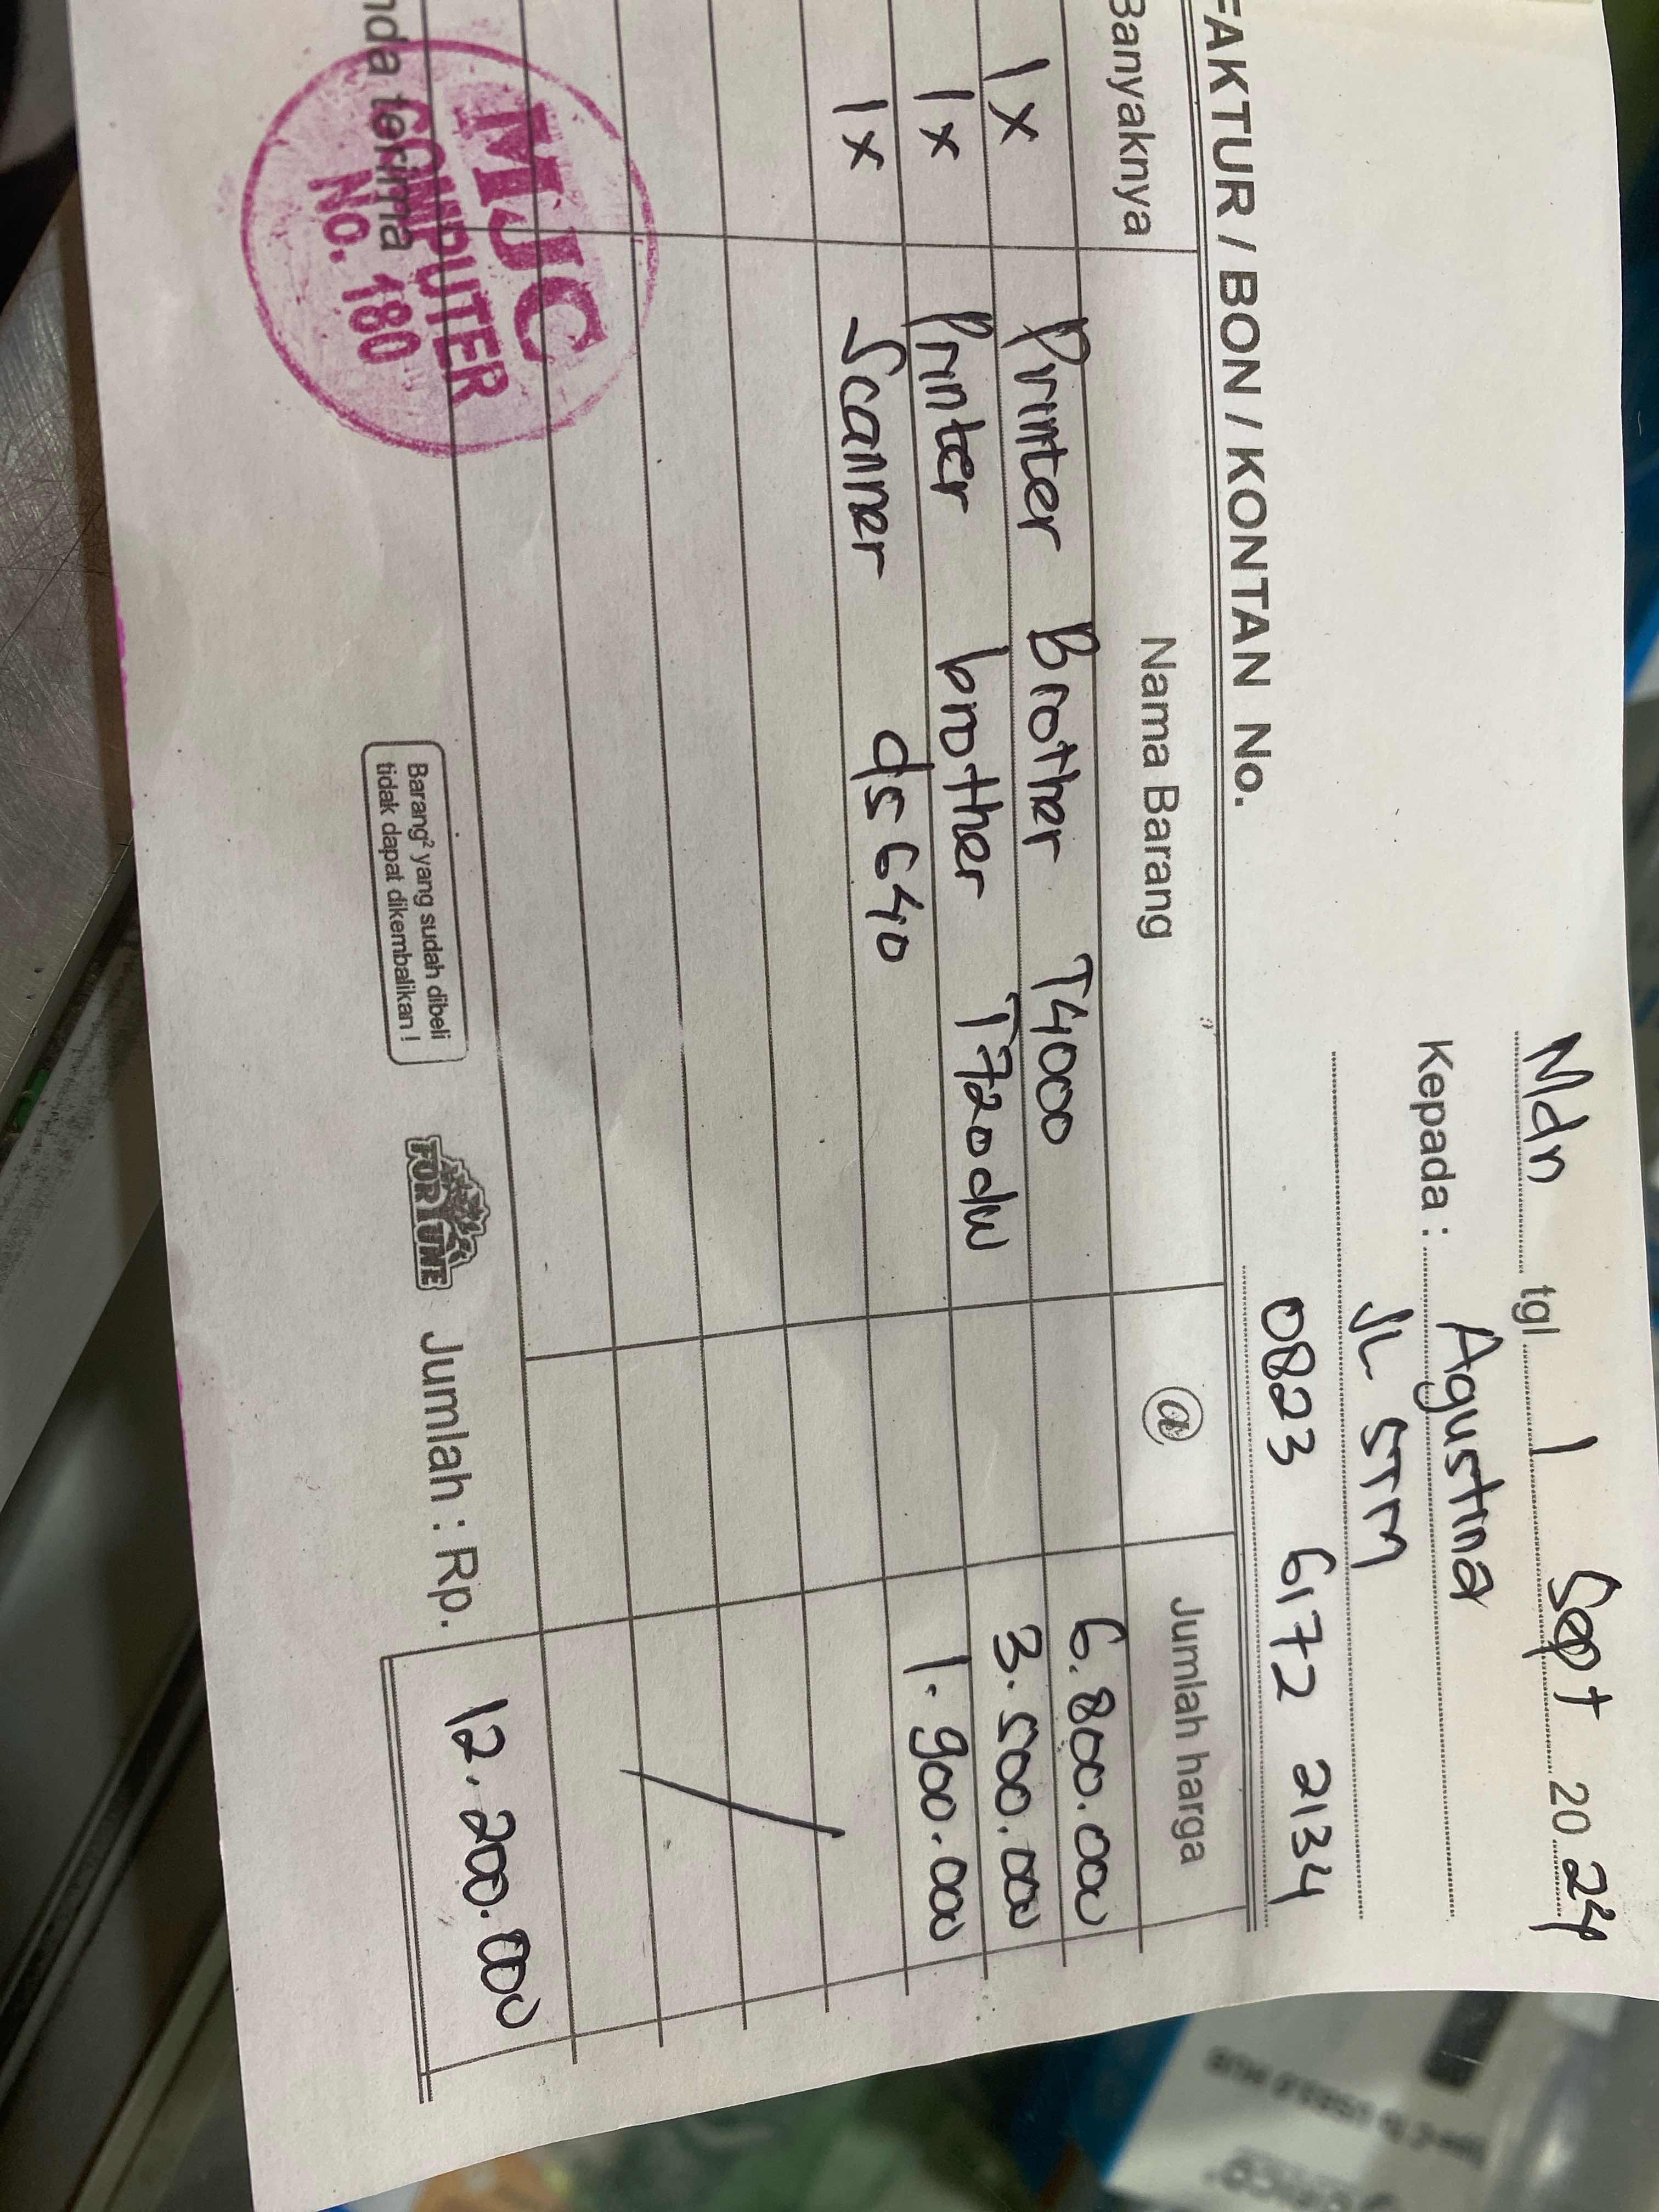 Mdn tgl 1 Sept 20 24
Kepada : Agustina
JL STM
0823 6172 2134
FAKTUR / BON / KONTAN No.
Banyaknya Nama Barang @ Jumlah harga
1x Printer Brother T4000 6.800.000
1x Printer brother T720dw 3.500.000
1x Scanner ds 640 1.900.000
MJC
COMPUTER
No. 180
nda terima
Barang² yang sudah dibeli
tidak dapat dikembalikan !
FORTUNE
Jumlah : Rp. 12.200.000